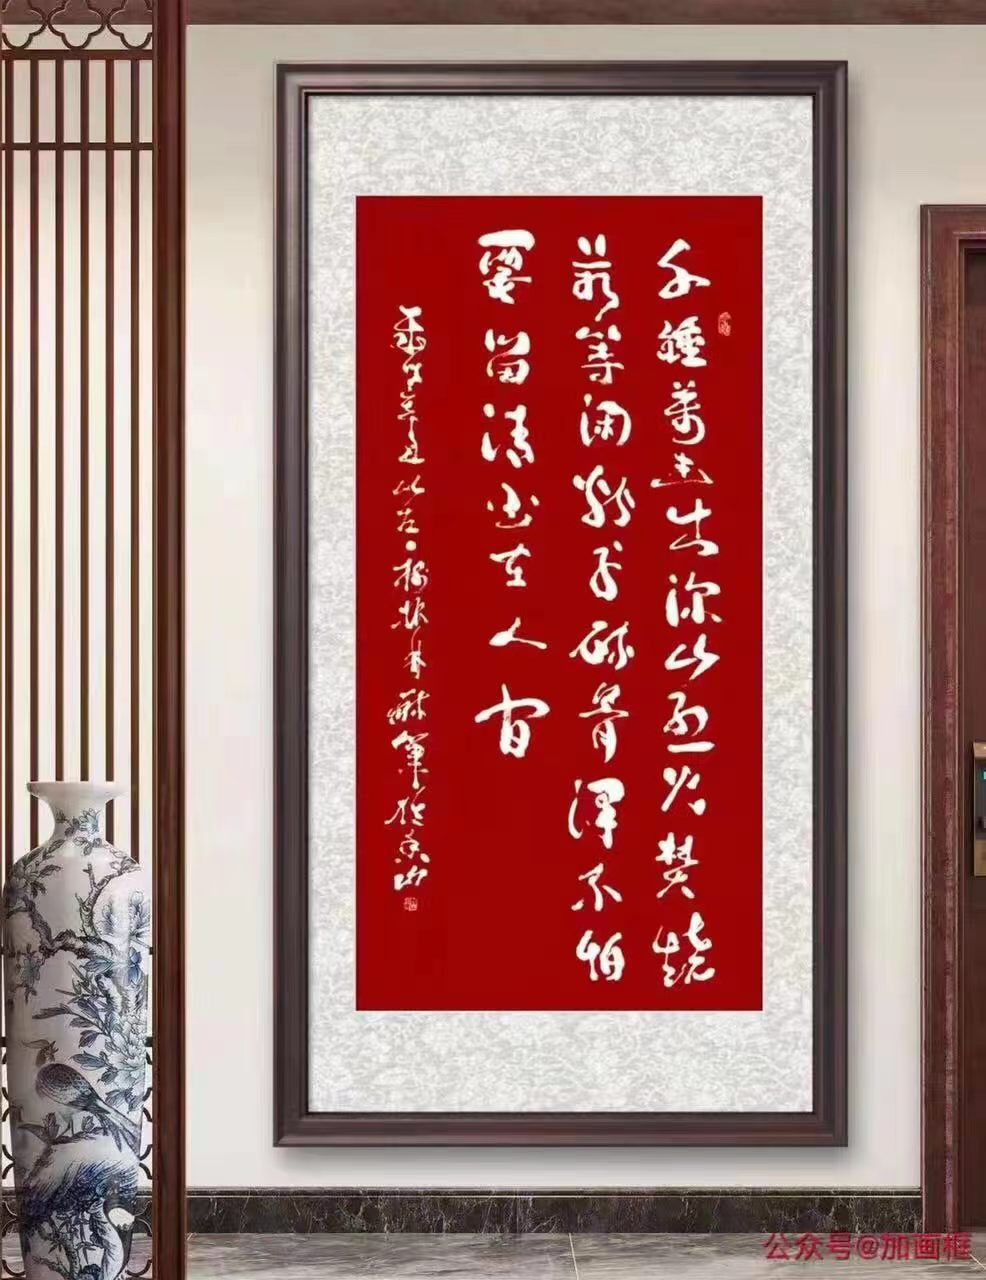 千錘萬击出深山烈火焚烧
若等闲粉身碎骨渾不怕
要留清白在人间
辛丑 香山
公众号@加画框